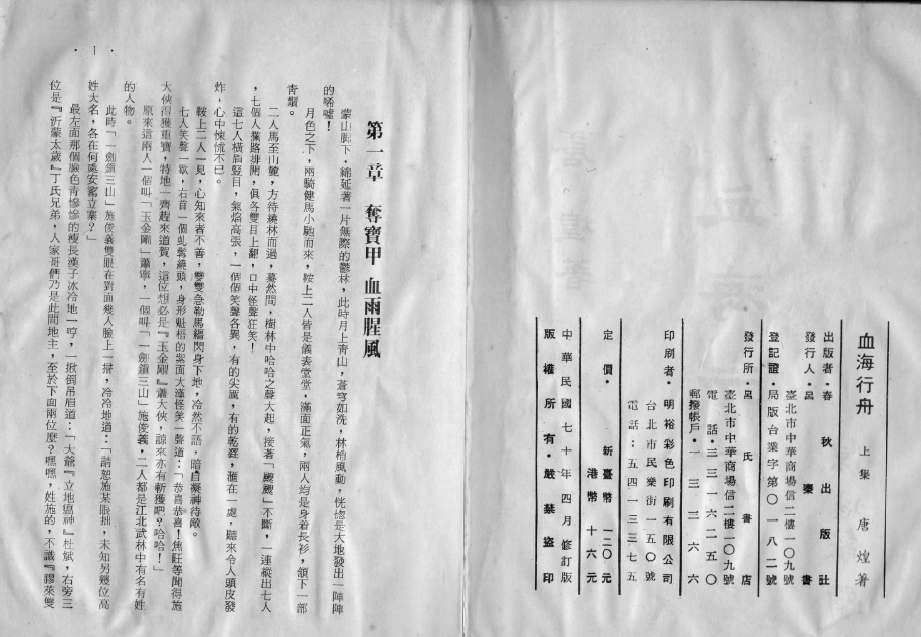 血海行舟 上集 唐煌著
出版者・春秋出版社
發行人・呂秦書
臺北市中華商場信二樓一0九號
登記證・局版台業字第0一八二號
發行所・呂氏書店
臺北市中華商場信二樓一0九號
電話・三三一六二五0
郵撥帳戶・一三三六六
印刷者・明裕彩色印刷有限公司
台北市民樂街一五0號
電話：五四一三三七五
定價・新臺幣一二0元
港幣十六元
中華民國七十年四月修訂版
版權所有・嚴禁盜印
第一章 奪寶甲 血雨腥風
蒙山脚下，綿延著一片無際的鬱林，此時月上青山，蒼穹如洗，林梢風動，恍惚是大地發出一陣陣
的唏噓！
月色之下，兩騎健馬小馳而來，鞍上二人皆是儀表堂堂，滿面正氣，兩人均是身着長衫，頷下一部
青鬚。
二人馬至山麓，方待繞林而過，驀然間，樹林中哈哈之聲大起，接著「颼颼」不斷，一連縱出七人
，七個人攔路排開，俱各雙目上翻，口中怪聲狂笑！
這七人橫眉豎目，氣焰高張，一個個笑聲各異，有的尖厲，有的乾澀，滙在一處，聽來令人頭皮發
炸，心中悚慌不已。
鞍上二人一見，心知來者不善，雙雙急勒馬韁閃身下地，冷然不語，暗自凝神待敵。
七人笑聲一歇，右首一個虬髯繞頭，身形魁梧的紫面大漢怪笑一聲道：「恭喜恭喜！焦某等聞得施
大俠得獲重寶，特地一齊趕來道賀，這位想必是『玉金剛』蕭大俠，諒來亦有斬獲吧？哈哈！」
原來這兩人一個叫「玉金剛」蕭寧，一個叫「一劍鎮三山」施俊義，二人都是江北武林中有名有姓
的人物。
此時「一劍鎮三山」施俊義雙眼在對面幾人臉上一掃，冷冷地道：「請恕施某眼拙，未知另幾位高
姓大名，各在何處安窰立寨？」
最左面那個臉色青慘慘的瘦長漢子冰冷地一哼，一掀倒吊眉道：「大爺『立地瘟神』杜斌，右旁三
位是『沂蒙太歲』丁氏兄弟，人家哥們乃是此間地主，至於下面兩位麼？嘿嘿，姓施的，不識『膠萊雙
・1・